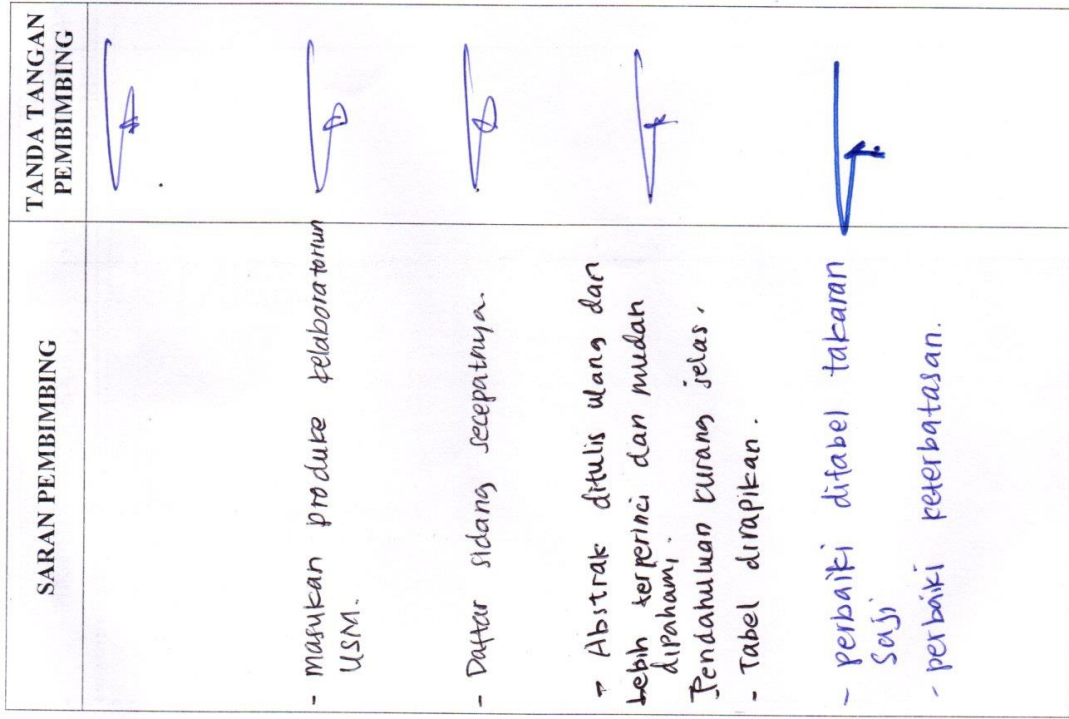 SARAN PEMBIMBING
TANDA TANGAN
PEMBIMBING
- masukan produke kelaboratoriun
USM.
- Daftar sidang secepatnya.
- Abstrak ditulis ulang dan
Lebih terperinci dan mudah
dipahami.
- Pendahuluan kurang jelas.
- Tabel dirapikan.
- perbaiki ditabel takaran
saji
- perbaiki keterbatasan.